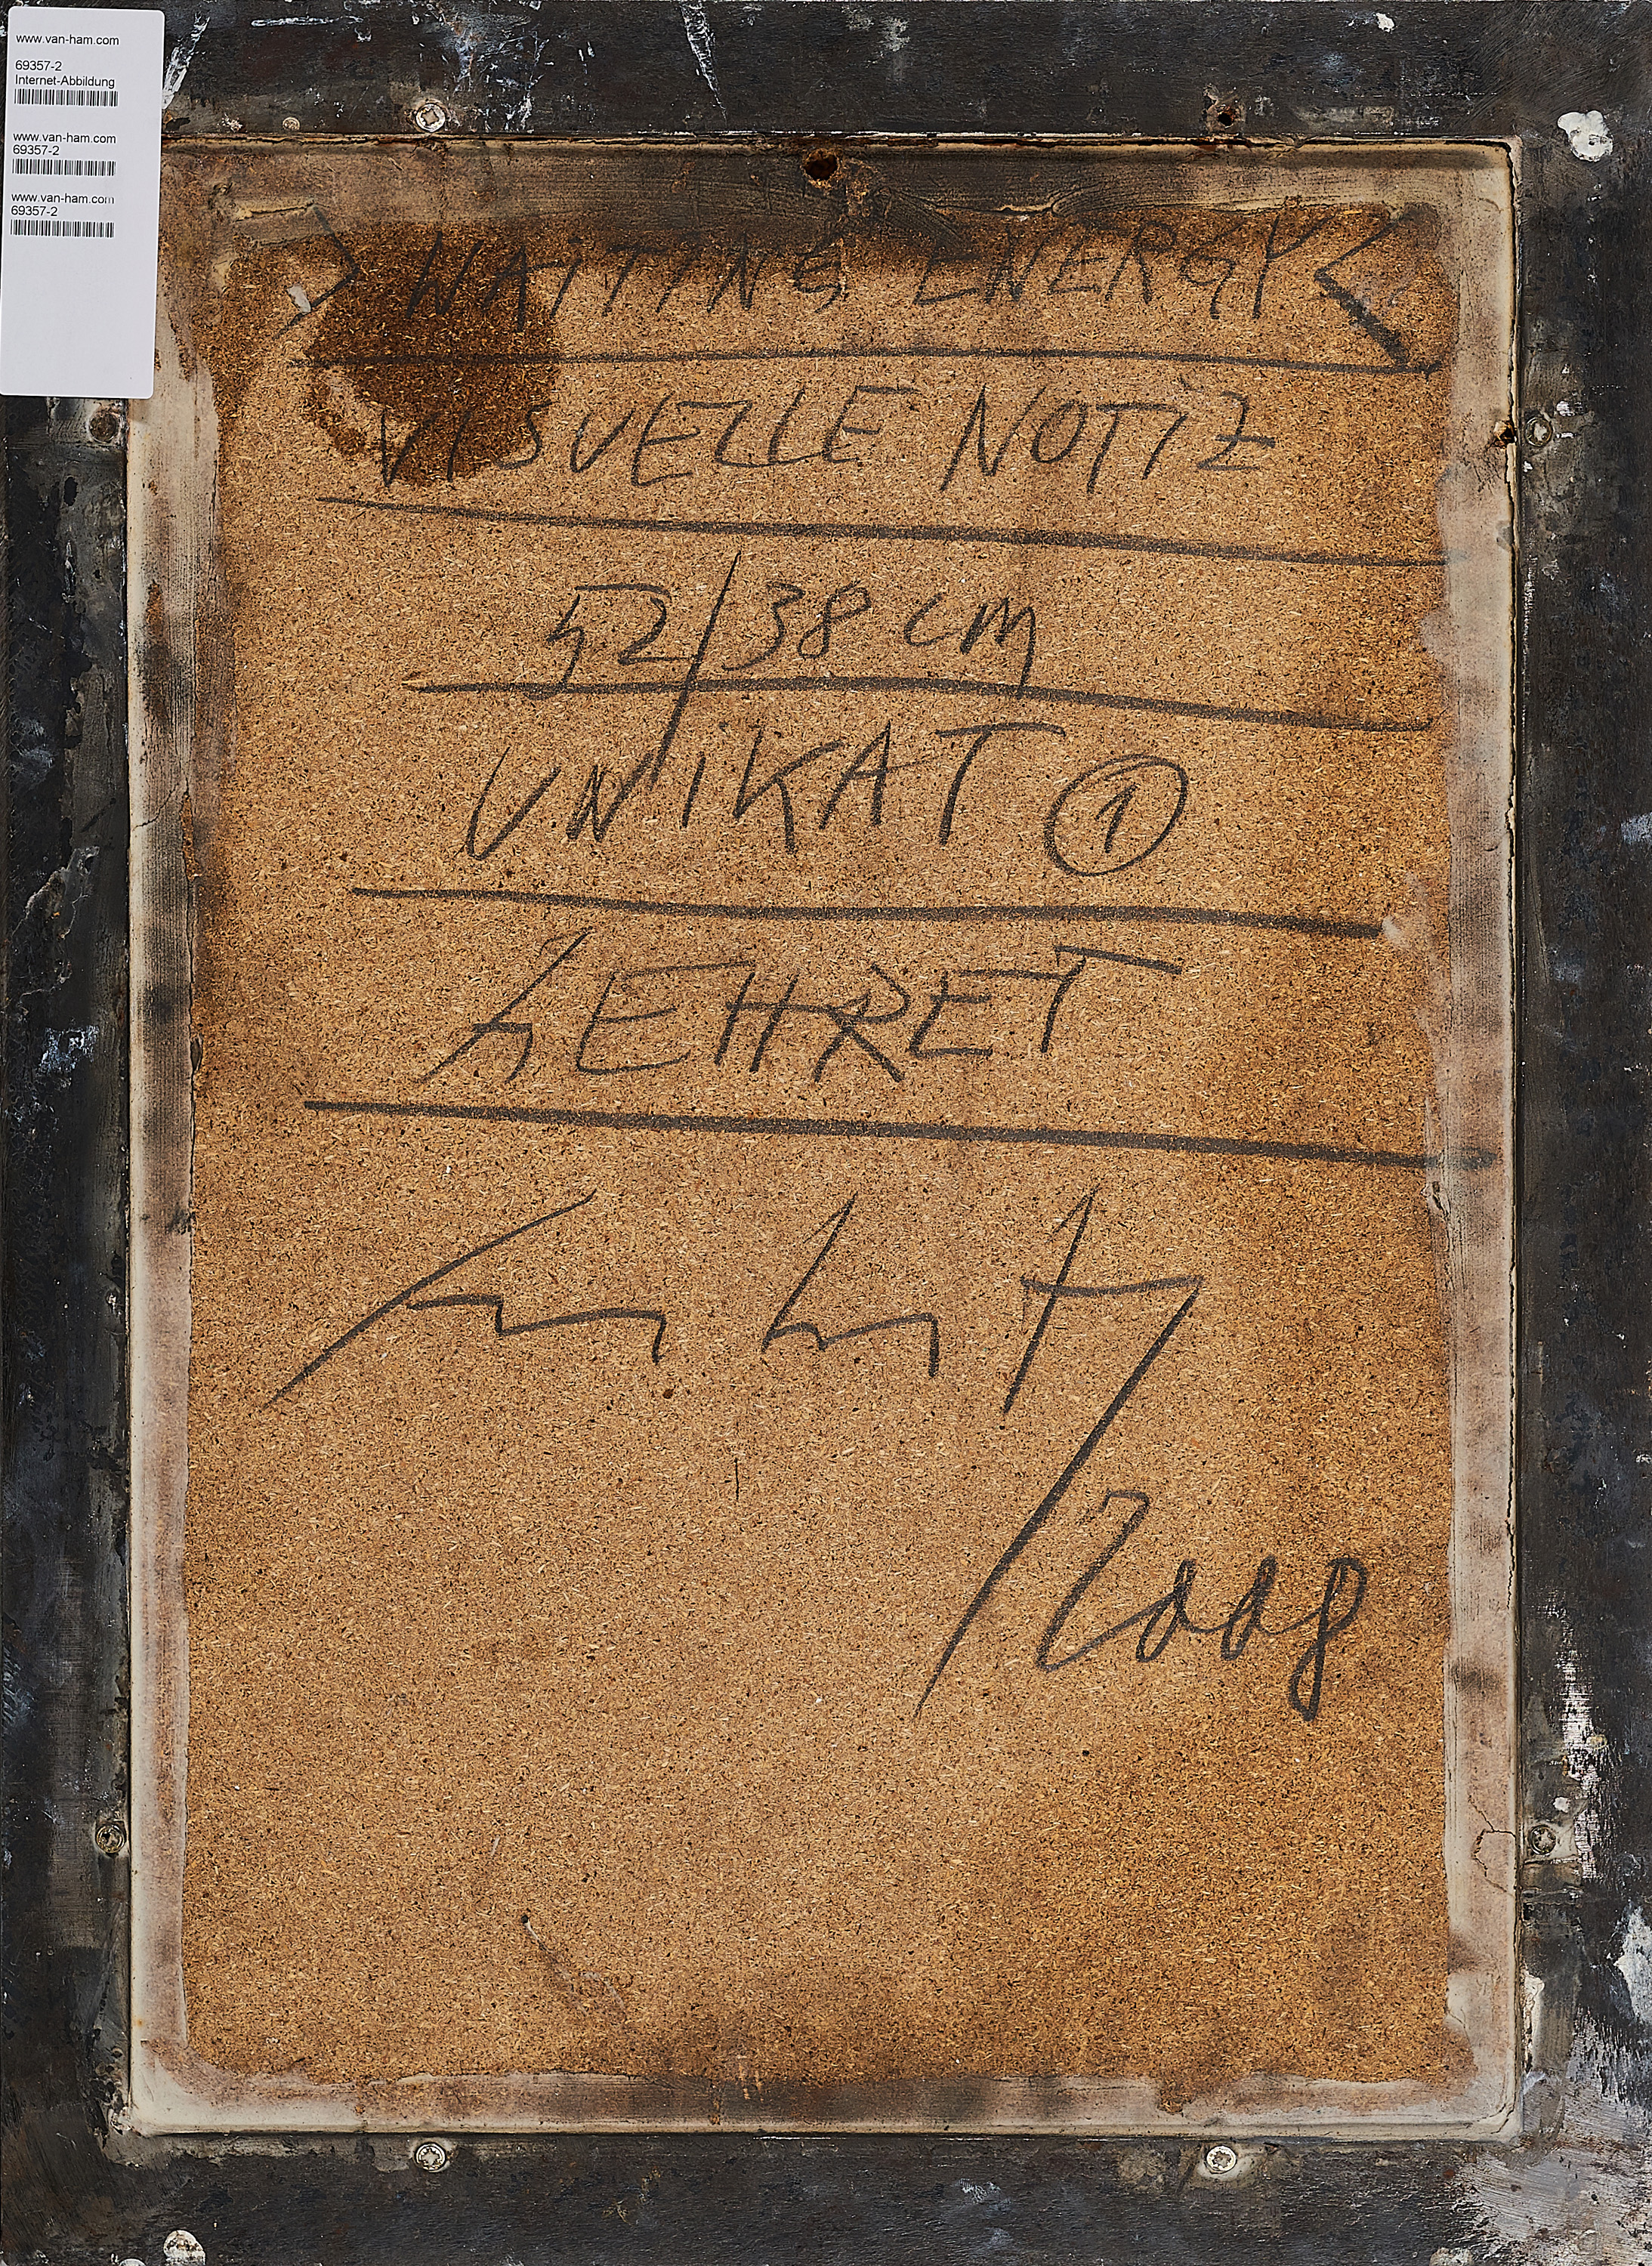 www.van-ham.com
69357-2
Internet-Abbildung
www.van-ham.com
69357-2
www.van-ham.com
69357-2
> WAiTiNG ENERGY <
VISUELLE NOTIZ
52/38 cm
UNiKAT ①
LEHRET
/2008